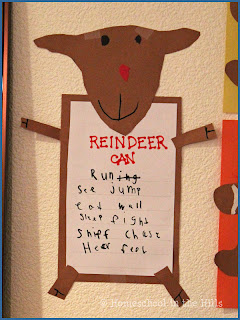 REINDEER
CAN
Run
see jump
eat wall
sleep fight
sniff chase
Hear feel
© Homeschool in the Hills